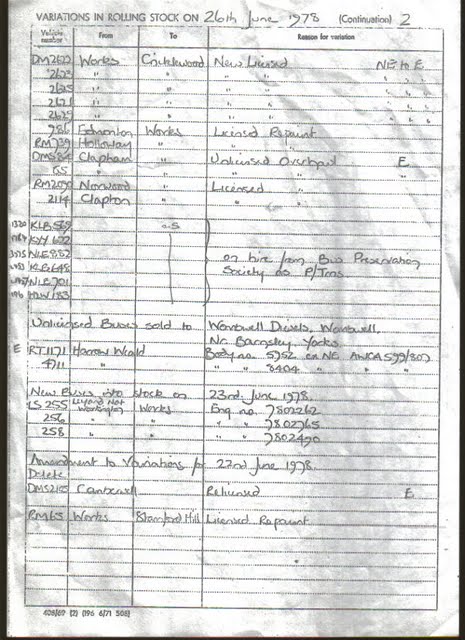 VARIATIONS IN ROLLING STOCK ON 26th June 1978 (Continuation) 2
Vehicle number From To Reason for variation
DM2622 Works Cricklewood New Licensed NE to E
2623 " " " " " " "
2625 " " " " " " "
2621 " " " " " " "
2629 " " " " " " "
986 Edmonton Works Licensed Repaint
RM739 Holloway " " "
DMS84 Clapham " Unlicensed Overhaul E
65 " " " " "
RM2090 Norwood " Licensed "
2114 Clapton " " "
1320 KLB569 a.s.
KYY622
NLE882 on hire from Bus Preservation
KLB648 Society as P/Tons
NLE701
196 HLW183
Unlicensed Buses sold to Wombwell Diesels, Wombwell,
Nr. Barnsley, Yorks.
E RT1171 Harrow Weald Body no. 5752 on NE AWCA 599/307
4711 " " " 8404 " "
New Buses into stock on 23rd June 1978.
LS 255 Leyland Nat Workington Works Eng no. 7802262
256 " " " " 7802765
258 " " " " 7802470
Amendment to Variations for 22nd June 1978.
Delete
DMS2155 Camberwell Relicensed E
RM65 Works Stamford Hill Licensed Repaint
408/69 (2) (196 6/71 50S)